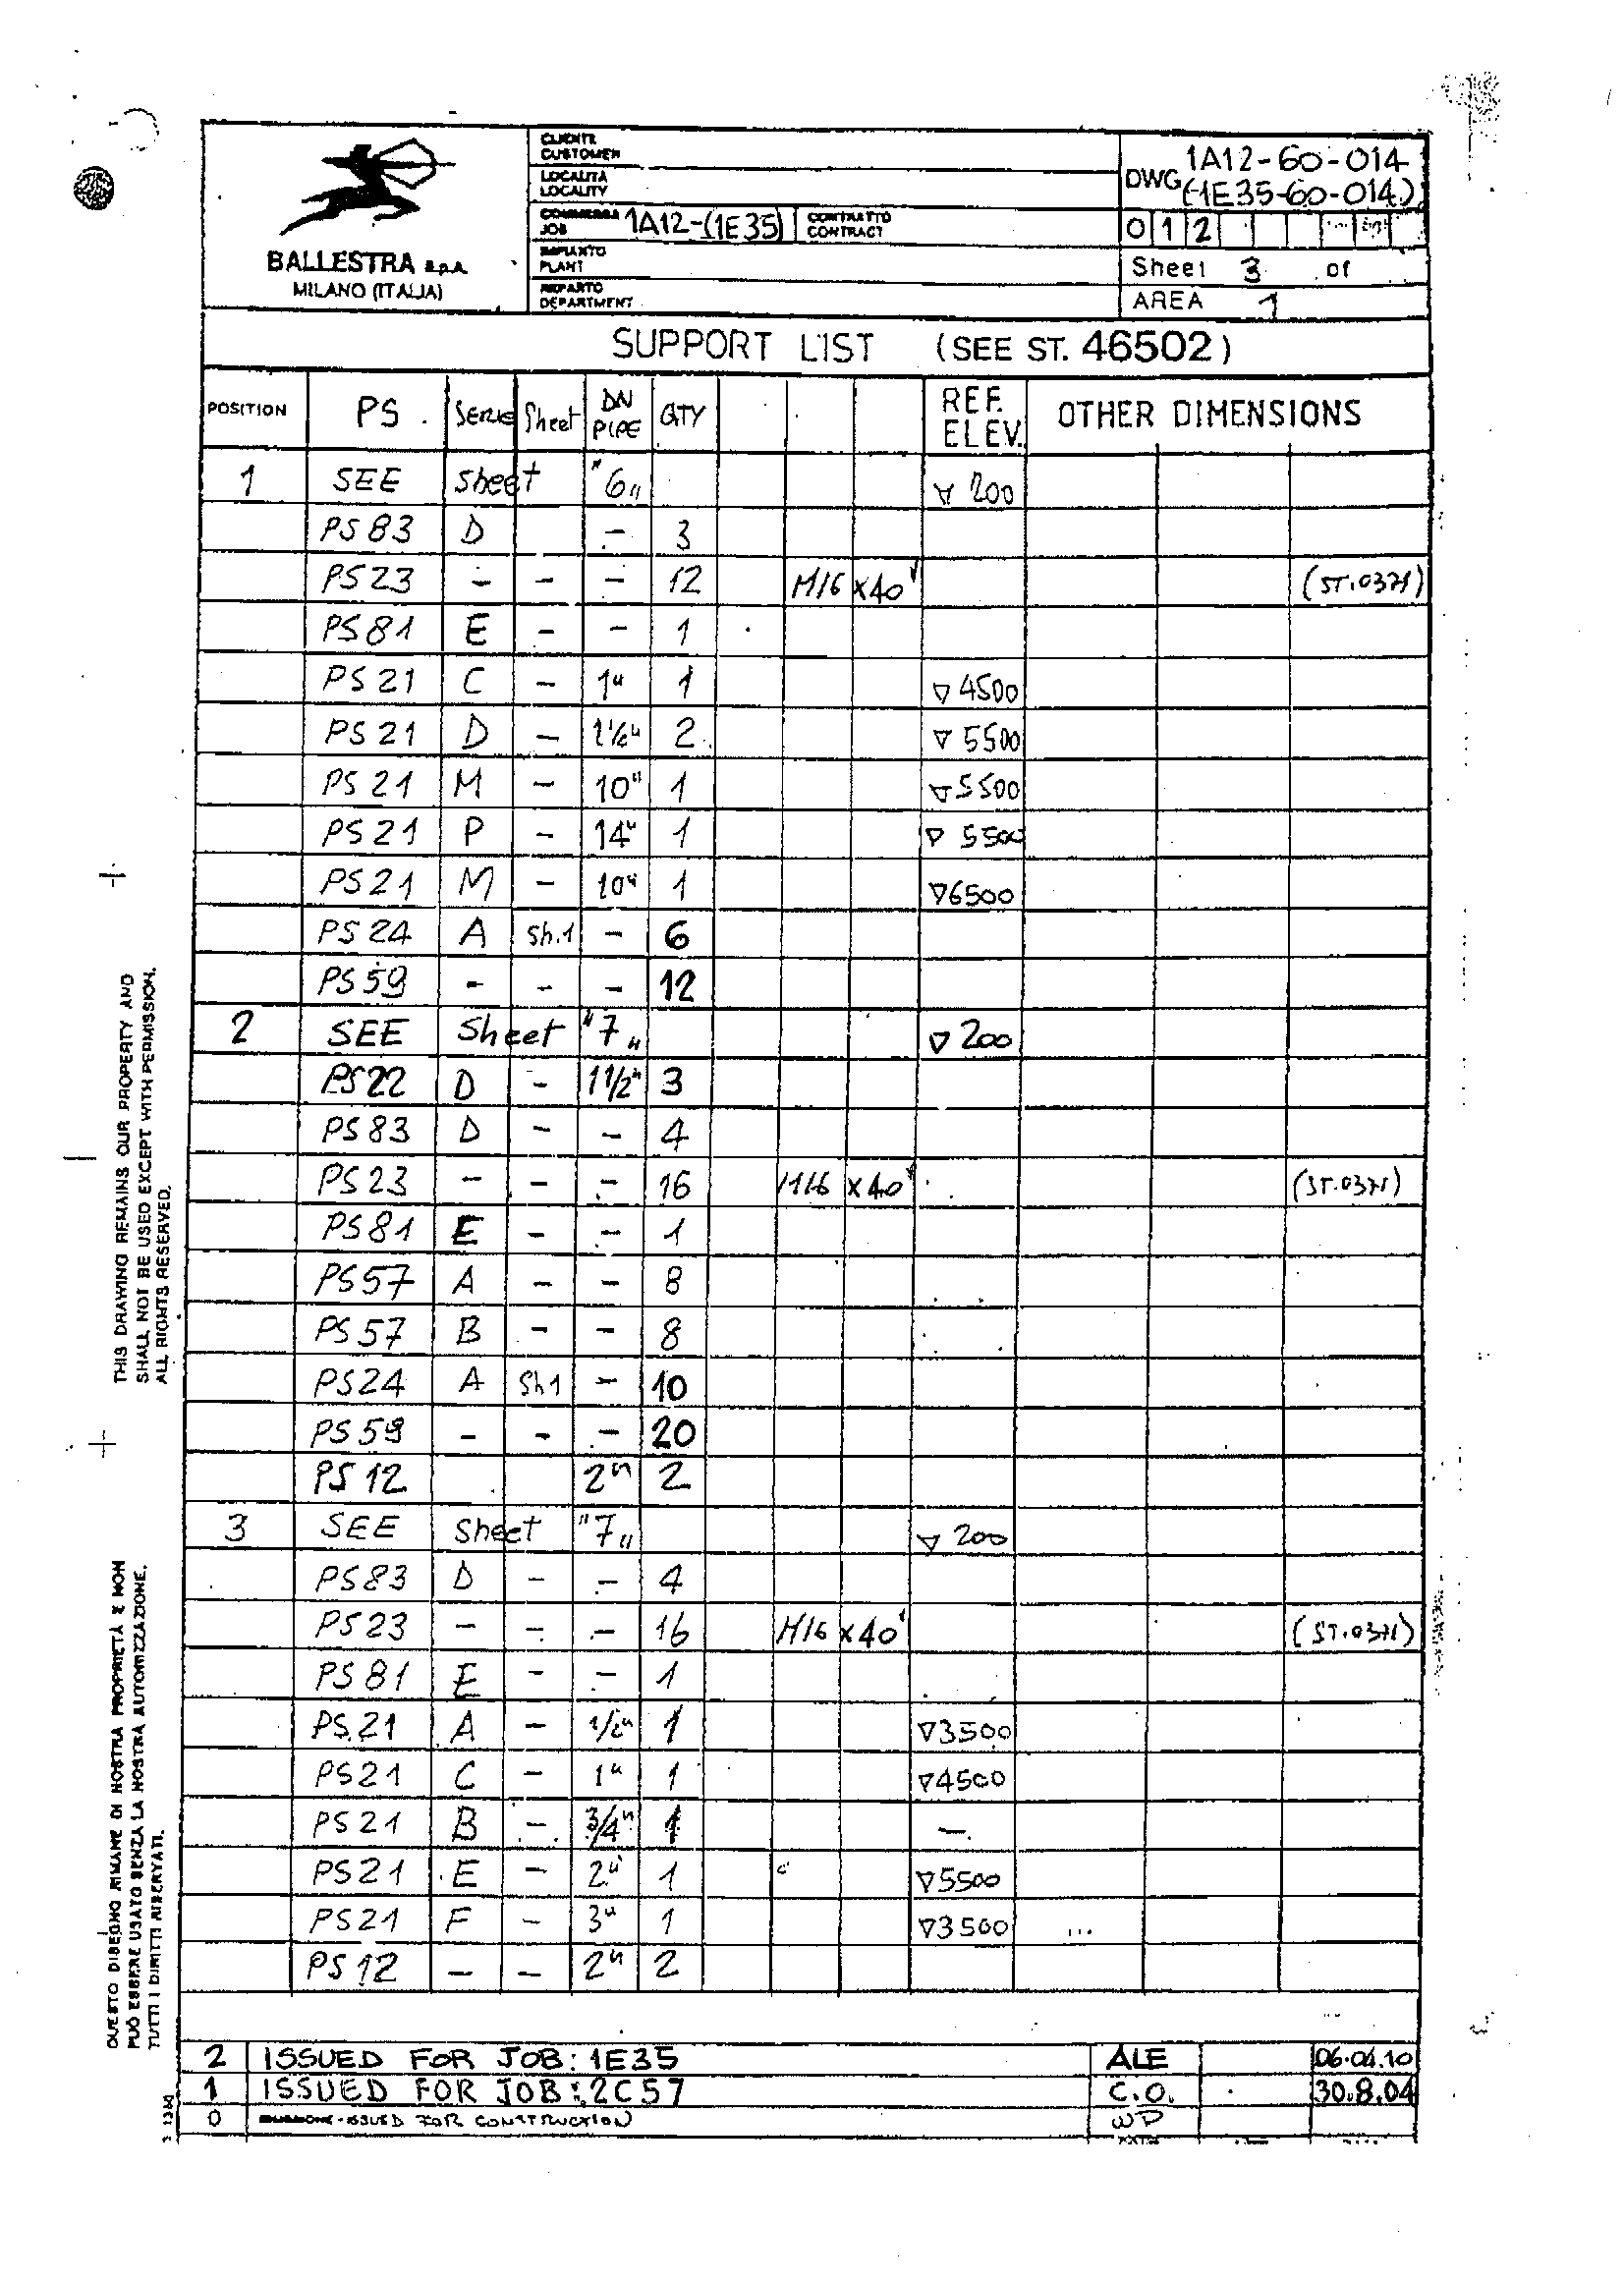 CLIENTE
CUSTOMER
LOCALITA
LOCALITY
COMMESSA
JOB
1A12-(1E35)
CONTRATTO
CONTRACT
IMPIANTO
PLANT
REPARTO
DEPARTMENT
BALLESTRA S.p.A.
MILANO (ITALIA)
DWG 1A12-60-014
(1E35-60-014)
0 1 2
Sheet 3 of
AREA 1
SUPPORT LIST (SEE ST. 46502)
POSITION PS. SERIE Sheet DN PIPE QTY REF. ELEV. OTHER DIMENSIONS
1 SEE Sheet "6" ▽ 200
PS 83 D - 3
PS 23 - - - 12 M16 x 40 (ST.0371)
PS 81 E - - 1
PS 21 C - 1" 1 ▽ 4500
PS 21 D - 1½" 2 ▽ 5500
PS 21 M - 10" 1 ▽ 5500
PS 21 P - 14" 1 ▽ 5500
PS 21 M - 10" 1 ▽ 6500
PS 24 A Sh.1 - 6
PS 59 - - - 12
2 SEE Sheet "7" ▽ 200
PS 22 D - 1 1/2" 3
PS 83 D - - 4
PS 23 - - - 16 M16 x 40 (ST.0371)
PS 81 E - - 1
PS 57 A - - 8
PS 57 B - - 8
PS 24 A Sh1 - 10
PS 59 - - - 20
PS 12 2" 2
3 SEE Sheet "7" ▽ 200
PS 83 D - - 4
PS 23 - - - 16 M16 x 40 (ST.0371)
PS 81 E - - 1
PS 21 A - 1/2" 1 ▽ 3500
PS 21 C - 1" 1 ▽ 4500
PS 21 B - 3/4" 1 -
PS 21 E - 2" 1 ▽ 5500
PS 21 F - 3" 1 ▽ 3500
PS 12 - - 2" 2
2 ISSUED FOR JOB: 1E35 ALE 06.04.10
1 ISSUED FOR JOB: 2C57 C.O. 30.8.04
0 ISSUED FOR CONSTRUCTION WP
THIS DRAWING REMAINS OUR PROPERTY AND
SHALL NOT BE USED EXCEPT WITH PERMISSION.
ALL RIGHTS RESERVED.
QUESTO DISEGNO RIMANE DI NOSTRA PROPRIETÀ E NON
PUÒ ESSERE USATO SENZA LA NOSTRA AUTORIZZAZIONE.
TUTTI I DIRITTI RISERVATI.